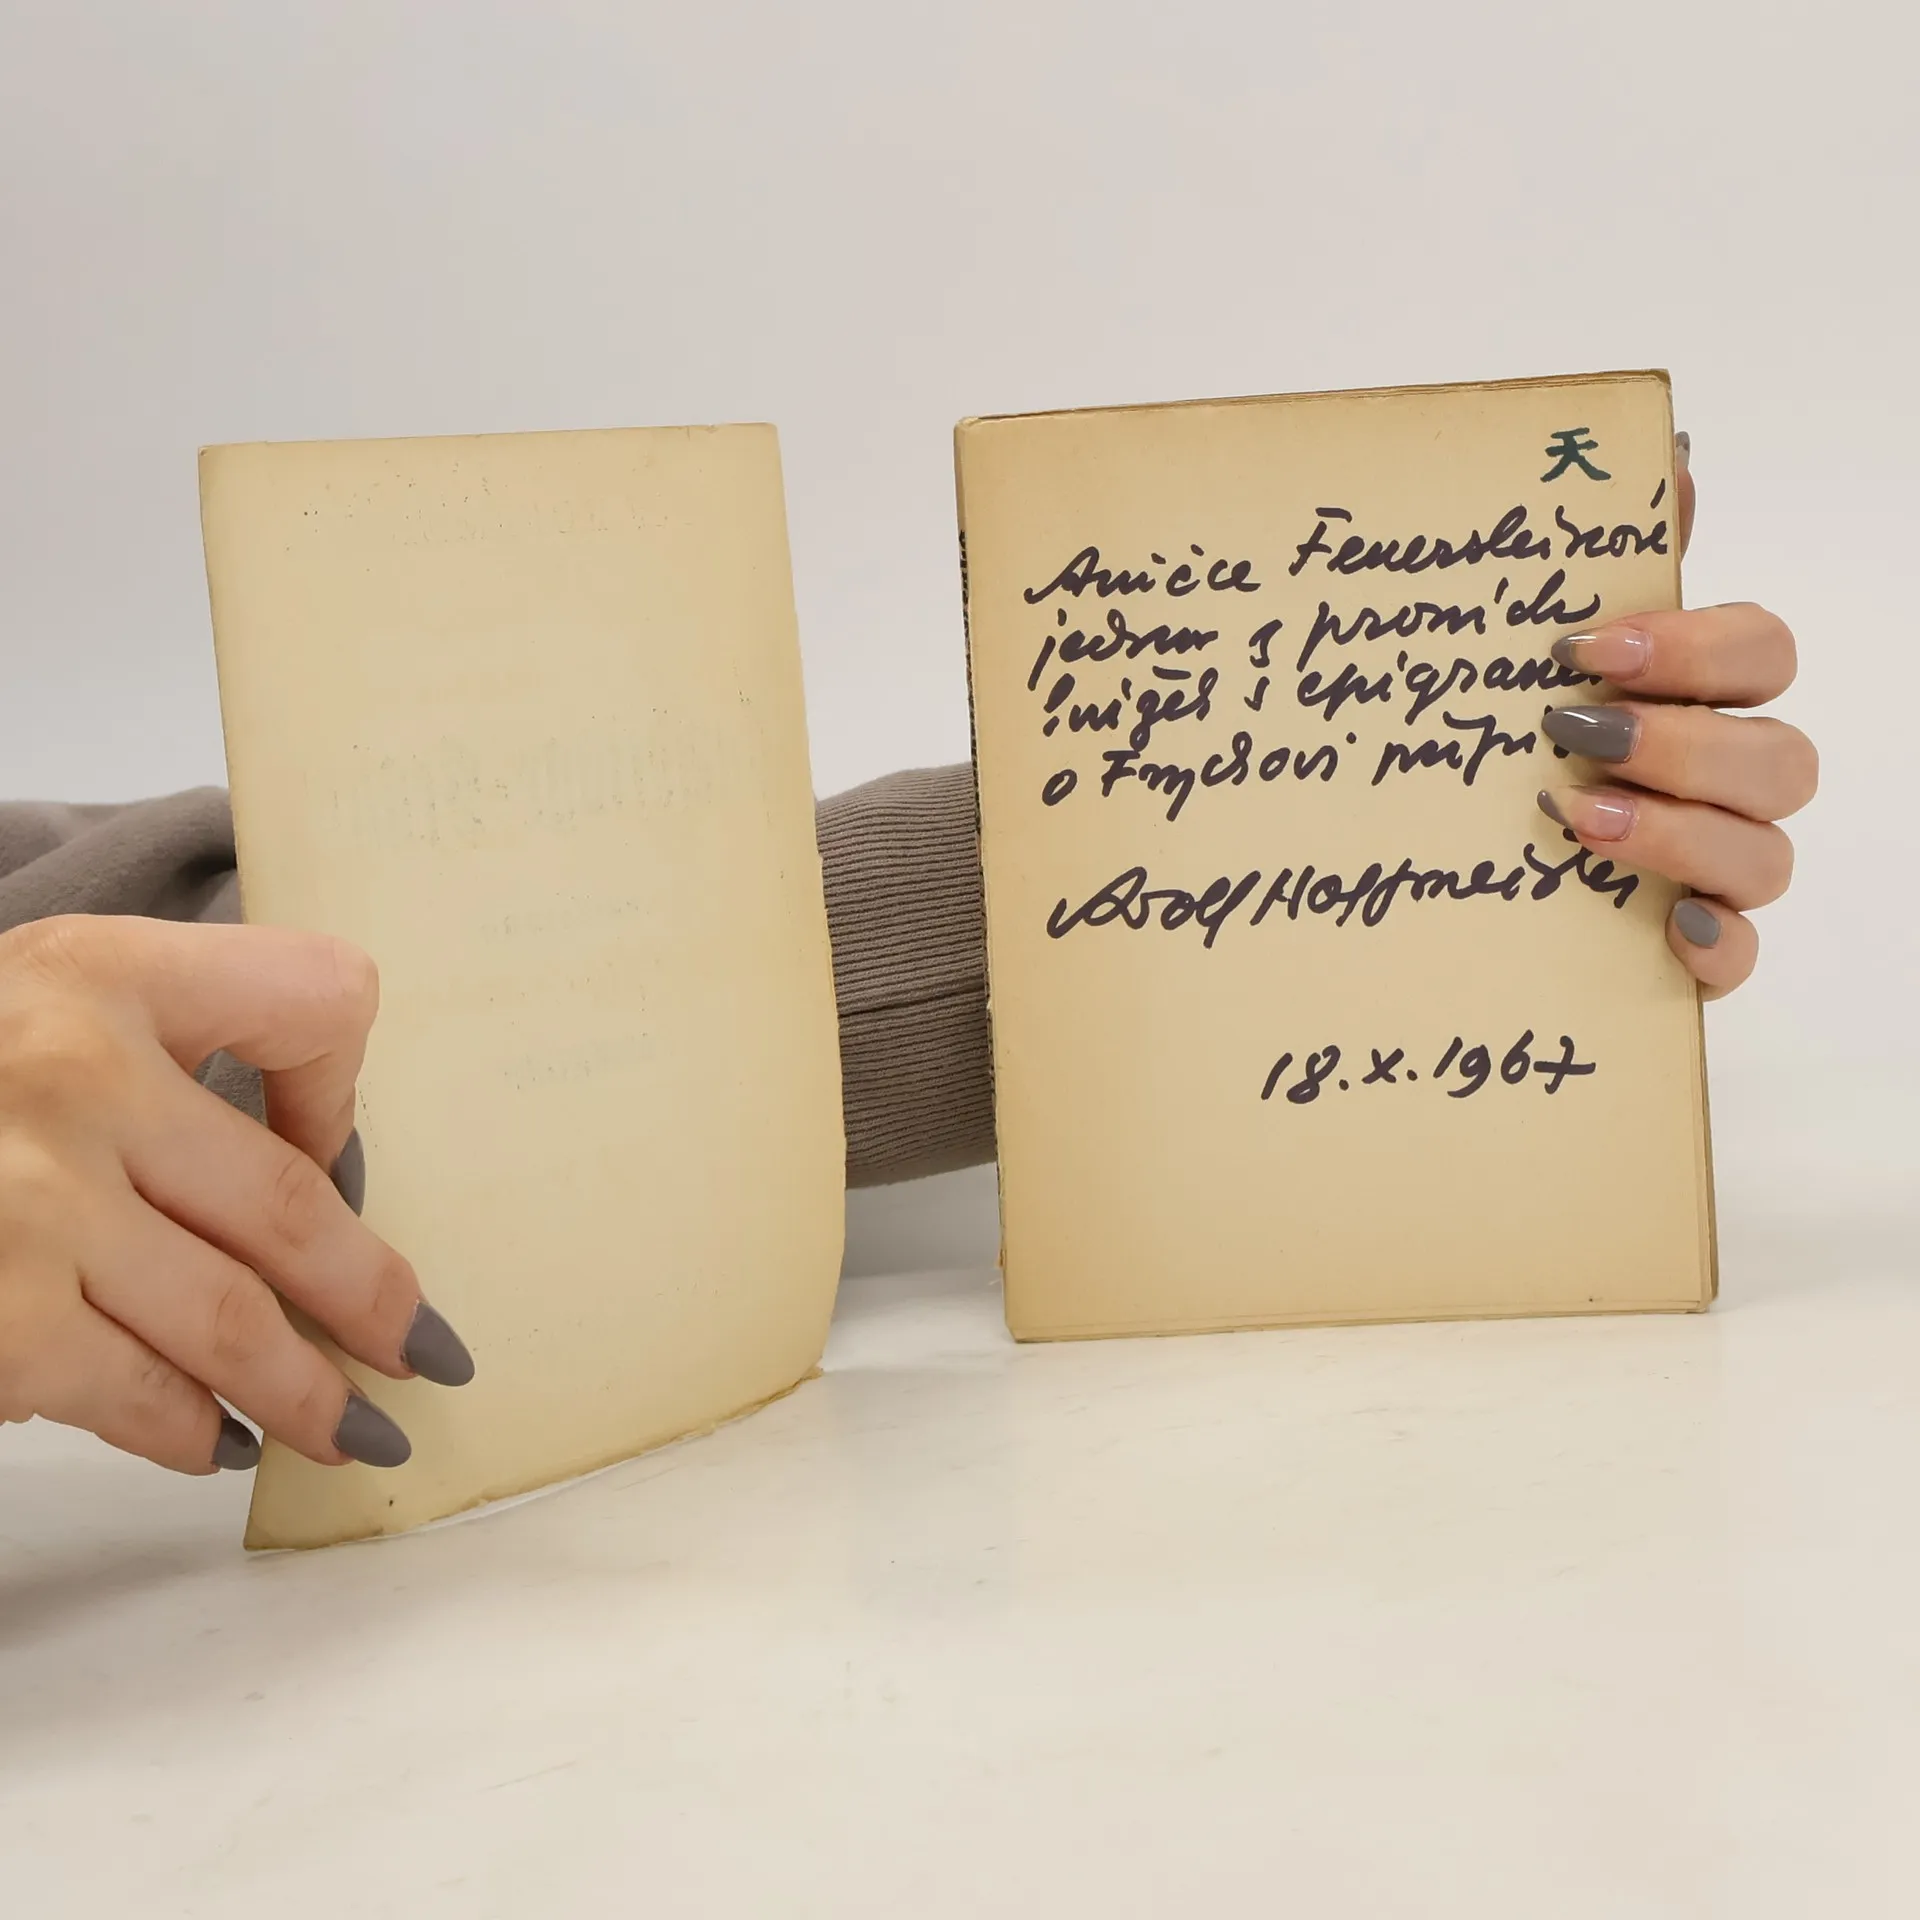 天
Aničce Feuersteinové
jednu z prvních
knížek s epigramem
o Frychovi připsal
Adolf Hoffmeister
18.X.1967